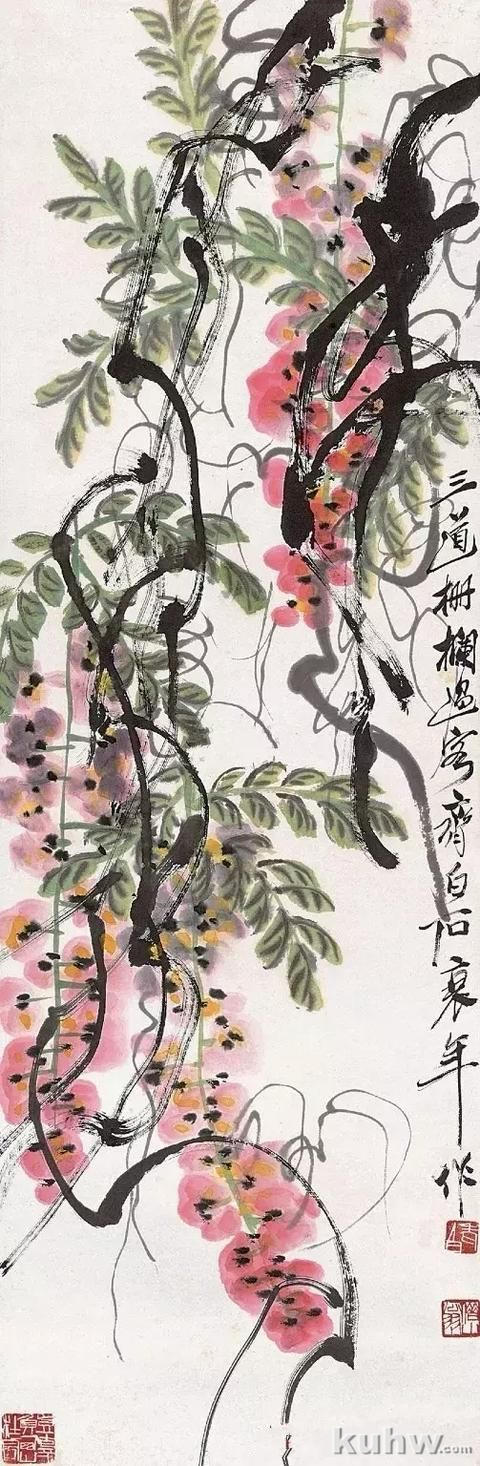 三道栅欄過客齊白石衰年作
kuhw.com